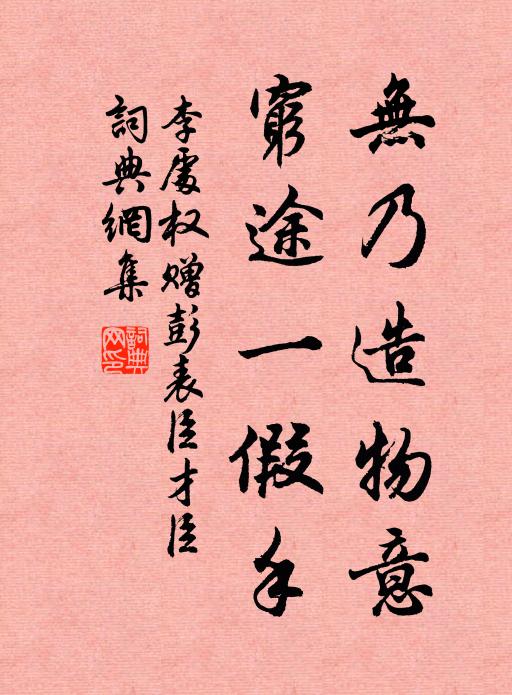 無乃造物意
窮途一假手
李處权贈彭表臣才臣
詞典網集
詞典網印